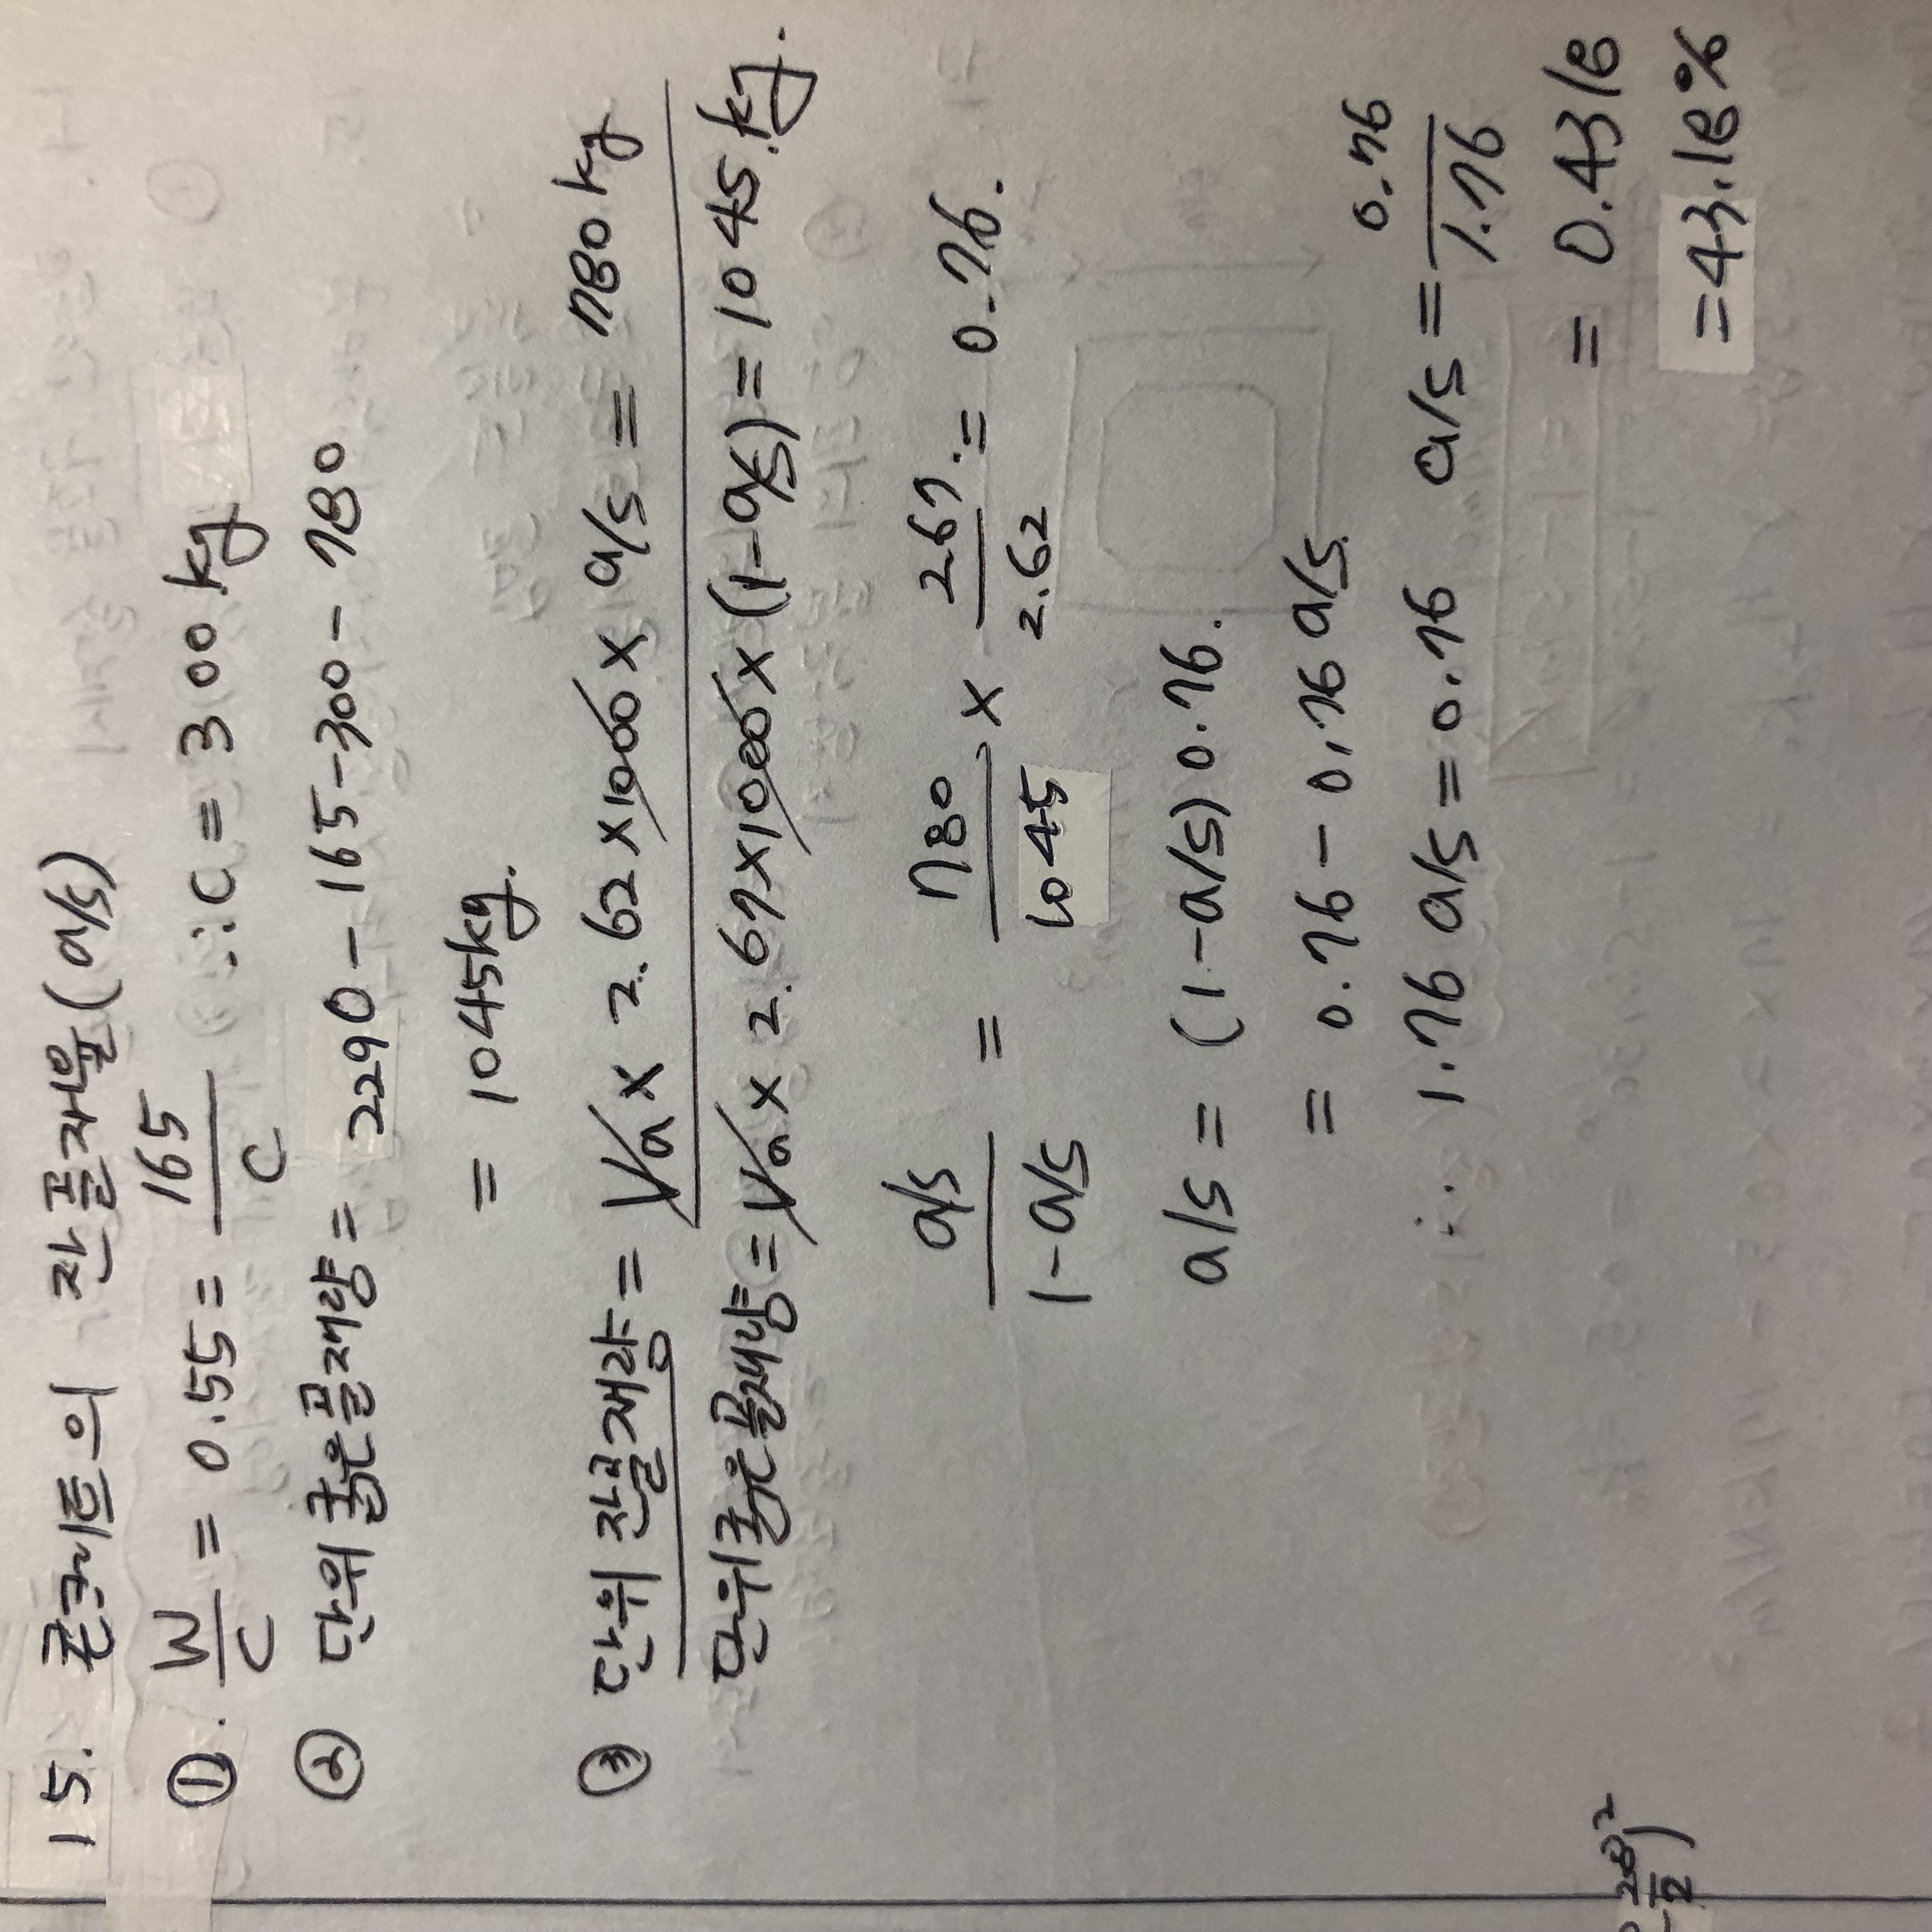 15. 콘크리트의 잔골재율(a/s)
①. W/C = 0.55 = 165/C ∴ C = 300kg
② 단위굵은골재량 = 2290-165-300-780
= 1045kg.
③ 단위잔골재량 = Va x 2.62 x 1000 x a/s = 780kg
단위굵은골재량 = Va x 2.67 x 1000 x (1-a/s) = 1045.kg.
a/s / 1-a/s = 780/1045 x 2.67/2.62 = 0.76.
a/s = (1-a/s) 0.76.
= 0.76 - 0.76 a/s.
∴ 1.76 a/s = 0.76 a/s = 0.76/1.76
= 0.4318
= 43.18%